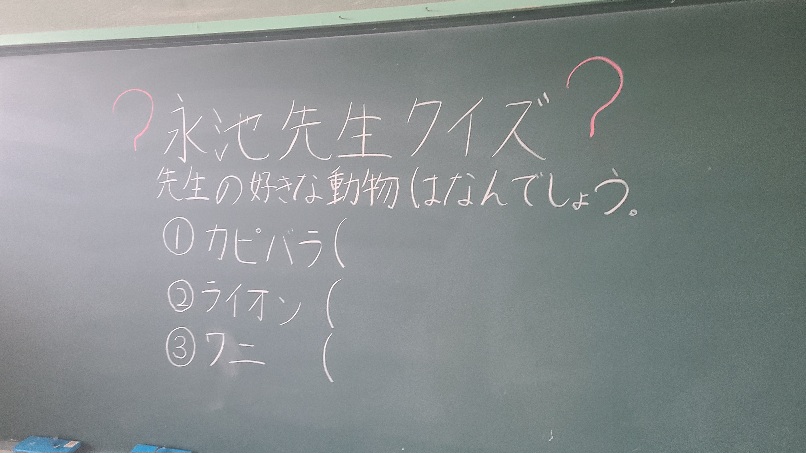 ？永池先生クイズ？
先生の好きな動物はなんでしょう。
①カピバラ(
②ライオン(
③ワニ(